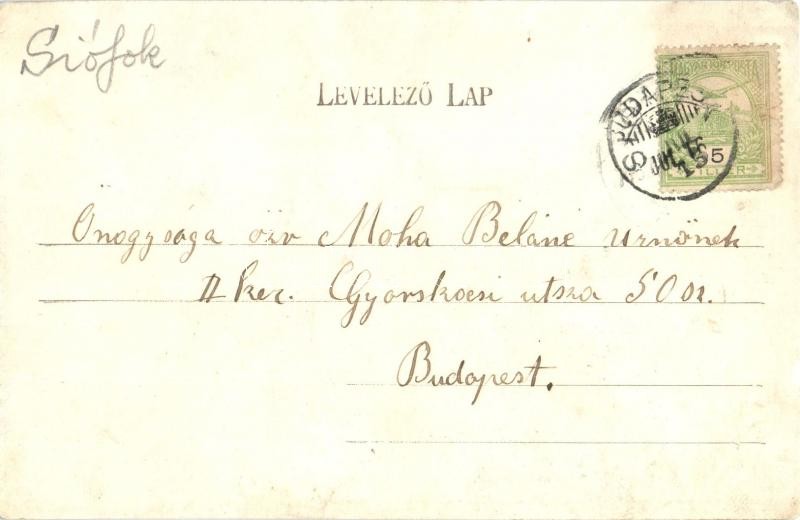 Siófok
LEVELEZŐ LAP
MAGYAR KIR. POSTA
5
FILLÉR
BUDAPEST
JUL
Onagysága özv Moha Béláné Urnőnek
II ker. Gyorskocsi utsza 50 sz.
Budapest.